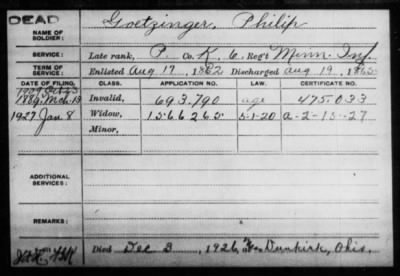 DEAD
NAME OF SOLDIER: Goetzinger, Philip
SERVICE: Late rank, P Co. K, 6 Reg't Minn. Inf.
TERM OF SERVICE: Enlisted Aug 17, 1862 Discharged Aug 19, 1865
DATE OF FILING. CLASS. APPLICATION NO. LAW. CERTIFICATE NO.
1909 Oct 23
1889 Mch 13 Invalid, 693.790 age 475.033
1927 Jan 8 Widow, 1566265 5-1-20 A-2-15-27
Minor,
ADDITIONAL SERVICES:
REMARKS:
Died Dec 3, 1926, Dunkirk, Ohio.